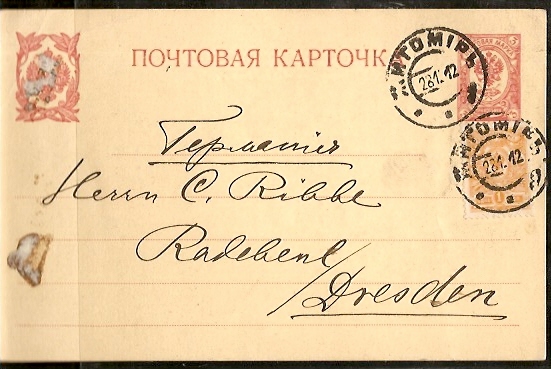 ПОЧТОВАЯ КАРТОЧКА
ЖИТОМІРЪ
28.1.12
ЖИТОМІРЪ
28.1.12
Германія
Herrn C. Ribbe
Radebeul
/Dresden